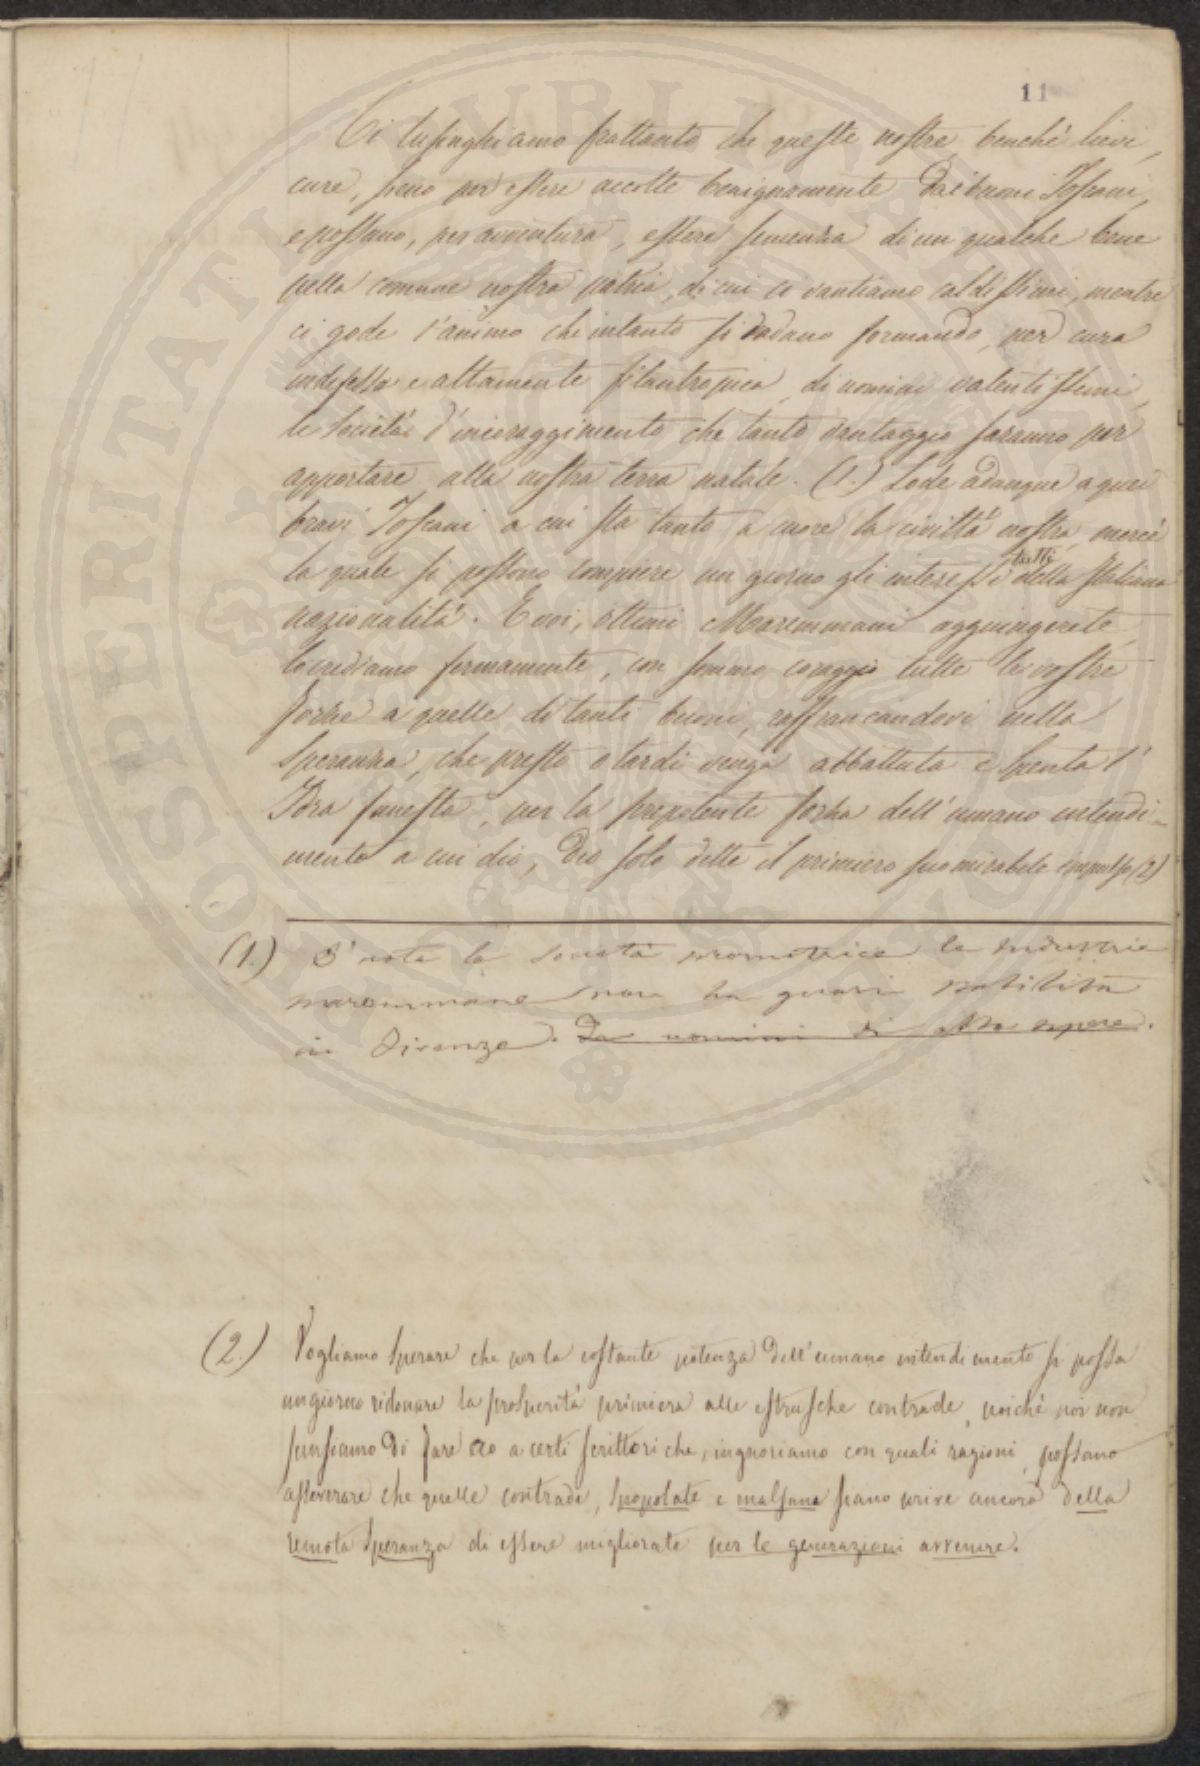 11
Ci lusinghiamo frattanto che queste nostre, benchè lievi,
cure, sieno per essere accolte benignamente dai buoni Toscani,
e possano, per avventura, essere semenza di un qualche bene
nella comune nostra patria, di cui ci vantiamo caldissimi, mentre
ci gode l'animo che intanto si vadano formando, per cura
indefessa e altamente filantropica, di uomini valentissimi,
le Società d'incoraggimento che tanto vantaggio saranno per
apportare alla nostra terra natale. (1.) Lode adunque a quei
bravi Toscani a cui sta tanto a cuore la civiltà nostra, mercè
la quale si possono compiere un giorno gli interessi tutti della Italiana
nazionalità. E voi, ottimi Maremmani aggiungerete,
lo crediamo fermamente, con sommo coraggio tutte le vostre
forze a quelle di tanti buoni, raffrancandovi nella
speranza, che presto o tardi venga abbattuta e spenta l'
Idra funesta, per la prepotente forza dell'umano intendi-
mento a cui dio, Dio solo dette il primiero suo mirabile impulso (2)
(1.) E' nota la Società promotrice le industrie
maremmane non ha guari stabilita
in Firenze. Da uomini di
(2.) Vogliamo sperare che per la costante potenza dell'umano intendimento si possa
un giorno ridonare la prosperità primiera alle etrusche contrade, poichè noi non
pensiamo di fare eco a certi scrittori che, ingnoriamo con quali ragioni, possano
asseverare che quelle contrade, spopolate e malsane siano prive ancora della
remota speranza di essere migliorate per le generazioni avvenire.